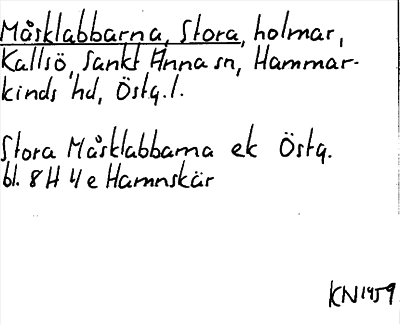 Måsklabbarna, Stora, holmar,
Kallsö, Sankt Anna sn, Hammar-
kinds hd, Östg.l.
Stora Måsklabbarna ek Östg.
bl. 8 H 4 e Hamnskär
KN 1959